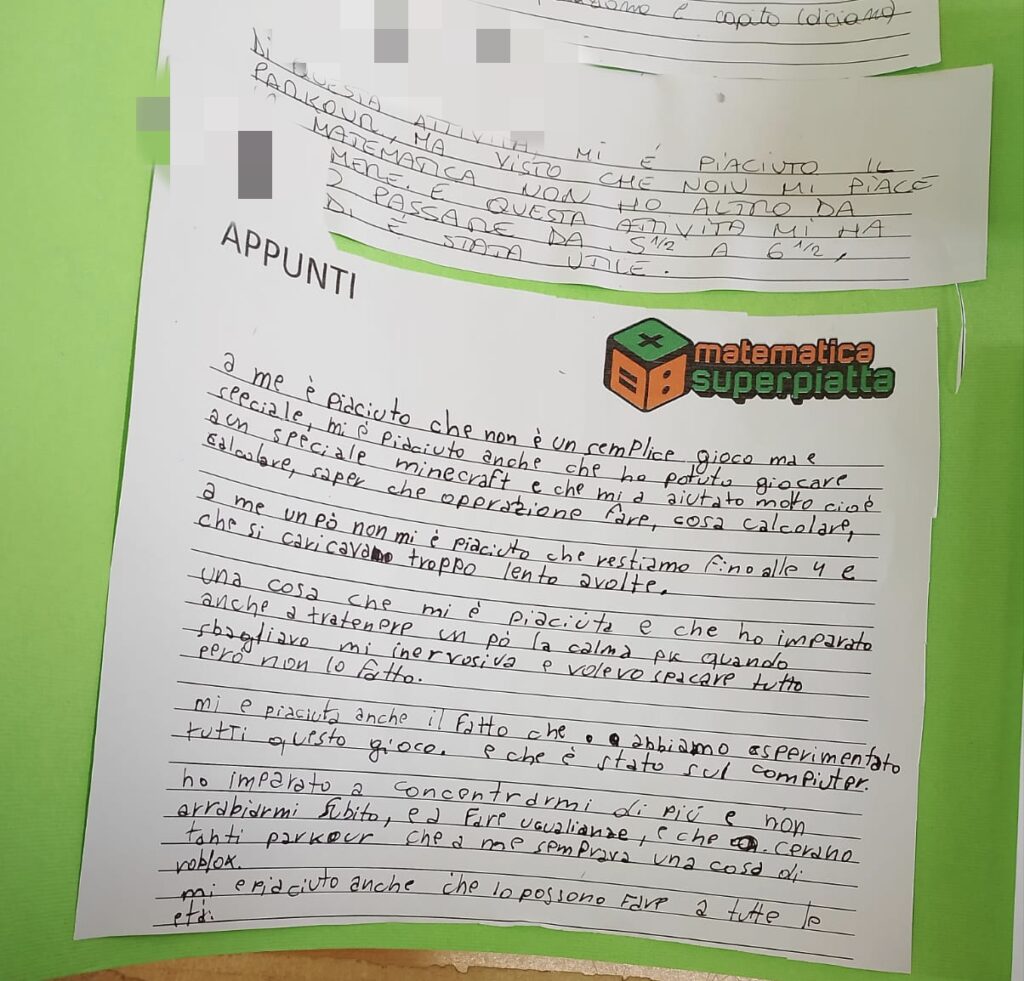 e capito (diciamo)
DI QUESTA ATTIVITA MI É PIACIUTO IL
PARKOUR, MA VISTO CHE NON MI PIACE
MATEMATICA NON HO ALTRO DA
METTERE. E QUESTA ATTIVITA MI HA
PASSARE DA 5 1/2 A 6 1/2,
DI É STATA UTILE.
APPUNTI
matematica
superpiatta
a me è piaciuto che non è un semplice gioco ma e
speciale, mi è piaciuto anche che ho potuto giocare
a un speciale minecraft e che mi a aiutato molto cioè
calcolare, saper che operazione fare, cosa calcolare,
a me un pò non mi è piaciuto che restiamo fino alle 4 e
che si caricava troppo lento avolte.
una cosa che mi è piaciuta e che ho imparato
anche a tratenere un pò la calma pk quando
sbagliavo mi inervosiva e volevo spacare tutto
però non lo fatto.
mi e piaciuta anche il fatto che abbiamo asperimentato
tutti questo gioco. e che è stato sul compiuter.
ho imparato a concentrarmi di piú e non
arrabiarmi subito, ed a fare ugualianze, e che cerano
tanti parkour che a me semprava una cosa di
roblox.
mi e piaciuto anche che lo possono fare a tutte le
età.